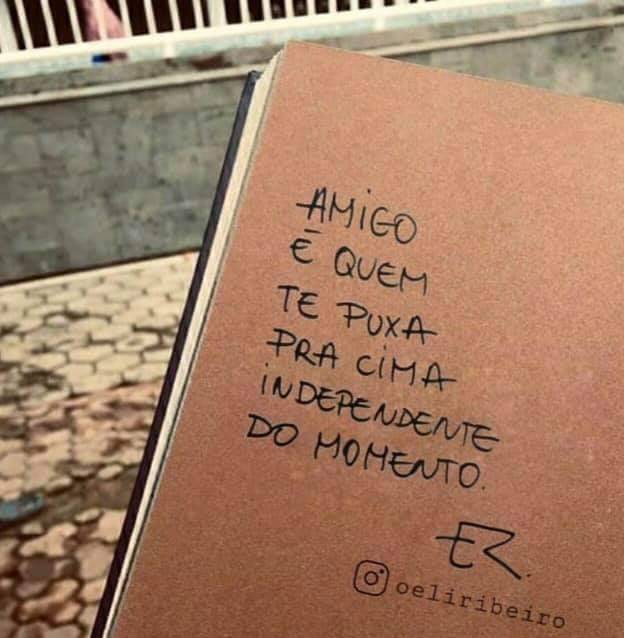 AMIGO
É QUEM
TE PUXA
PRA CIMA
INDEPENDENTE
DO MOMENTO.
ER.
oeliribeiro